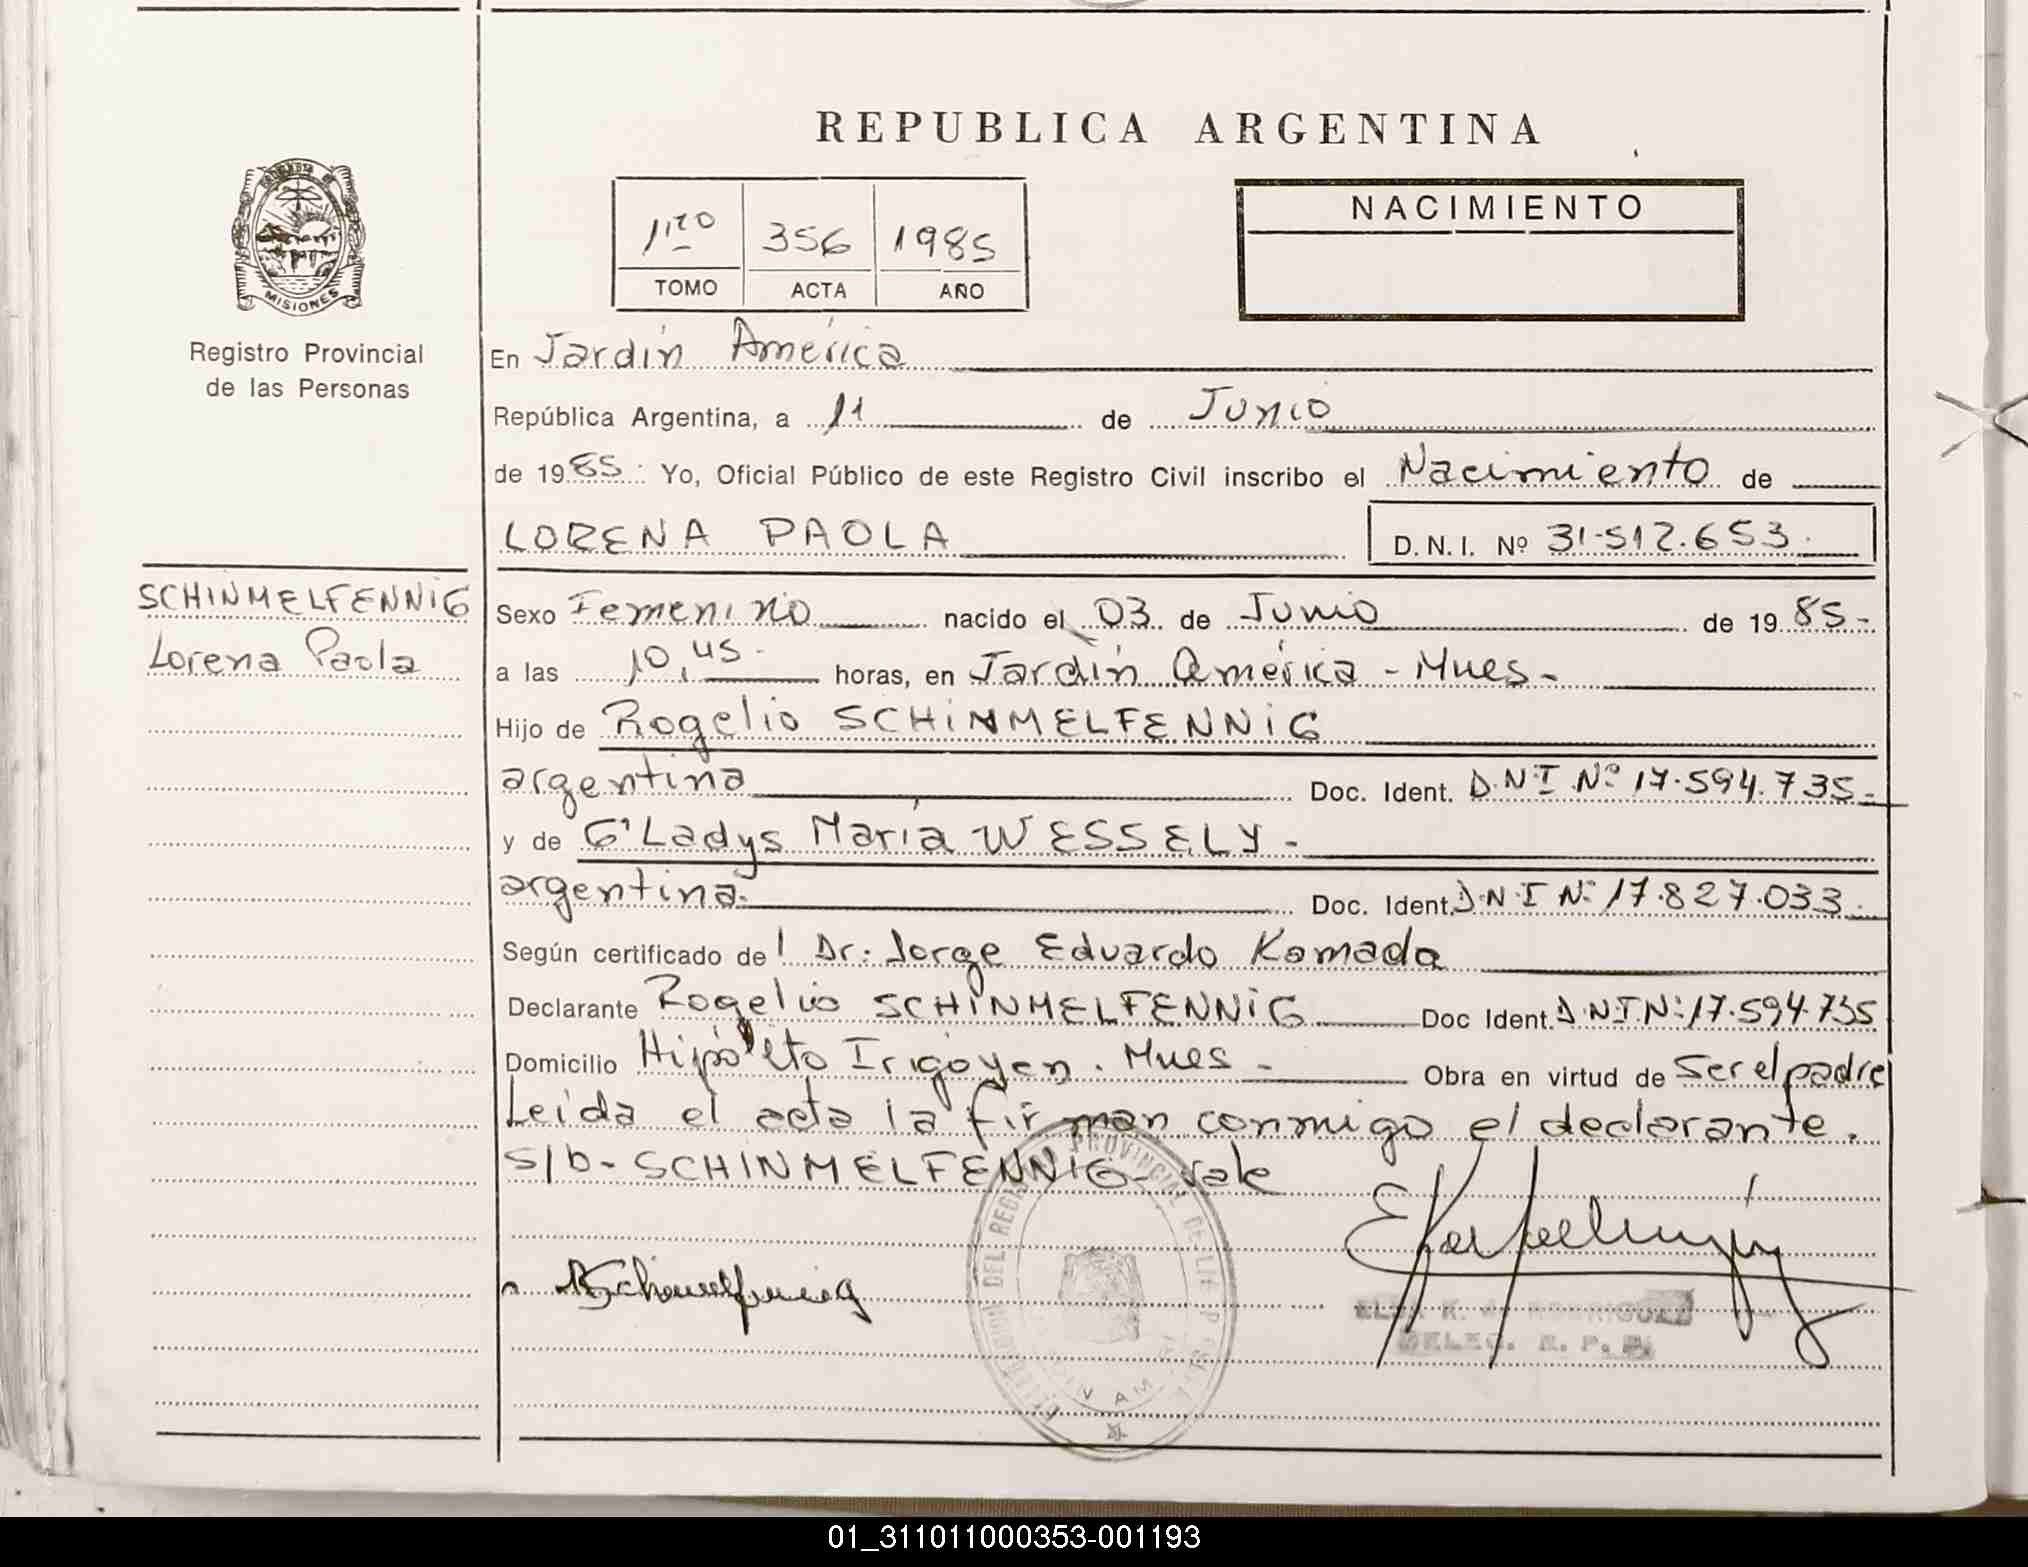 REPUBLICA ARGENTINA
MISIONES
Registro Provincial
de las Personas
1ro 356 1985
TOMO ACTA AÑO
NACIMIENTO
En Jardín América
República Argentina, a 11 de Junio
de 1985. Yo, Oficial Público de este Registro Civil inscribo el Nacimiento de
LORENA PAOLA D.N.I. Nº 31.512.653.
SCHINMELFENNIG
Lorena Paola
Sexo Femenino nacido el 03 de Junio de 1985.-
a las 10,45- horas, en Jardín América - Mnes-
Hijo de Rogelio SCHINMELFENNIG
argentina Doc. Ident. D.N.I. Nº 17.594.735.-
y de Gladys María WESSELY-
argentina. Doc. Ident. D.N.I Nº 17.827.033.
Según certificado del Dr. Jorge Eduardo Kamada
Declarante Rogelio SCHINMELFENNIG Doc Ident. D.N.I Nº 17.594.735
Domicilio Hipólito Irigoyen. Mnes- Obra en virtud de ser el padre
Leida el acta la firman conmigo el declarante.
s/b- SCHINMELFENNIG- vale
DEL REGISTRO PROVINCIAL DE LAS
DELEG. R. P. P.
01_311011000353-001193